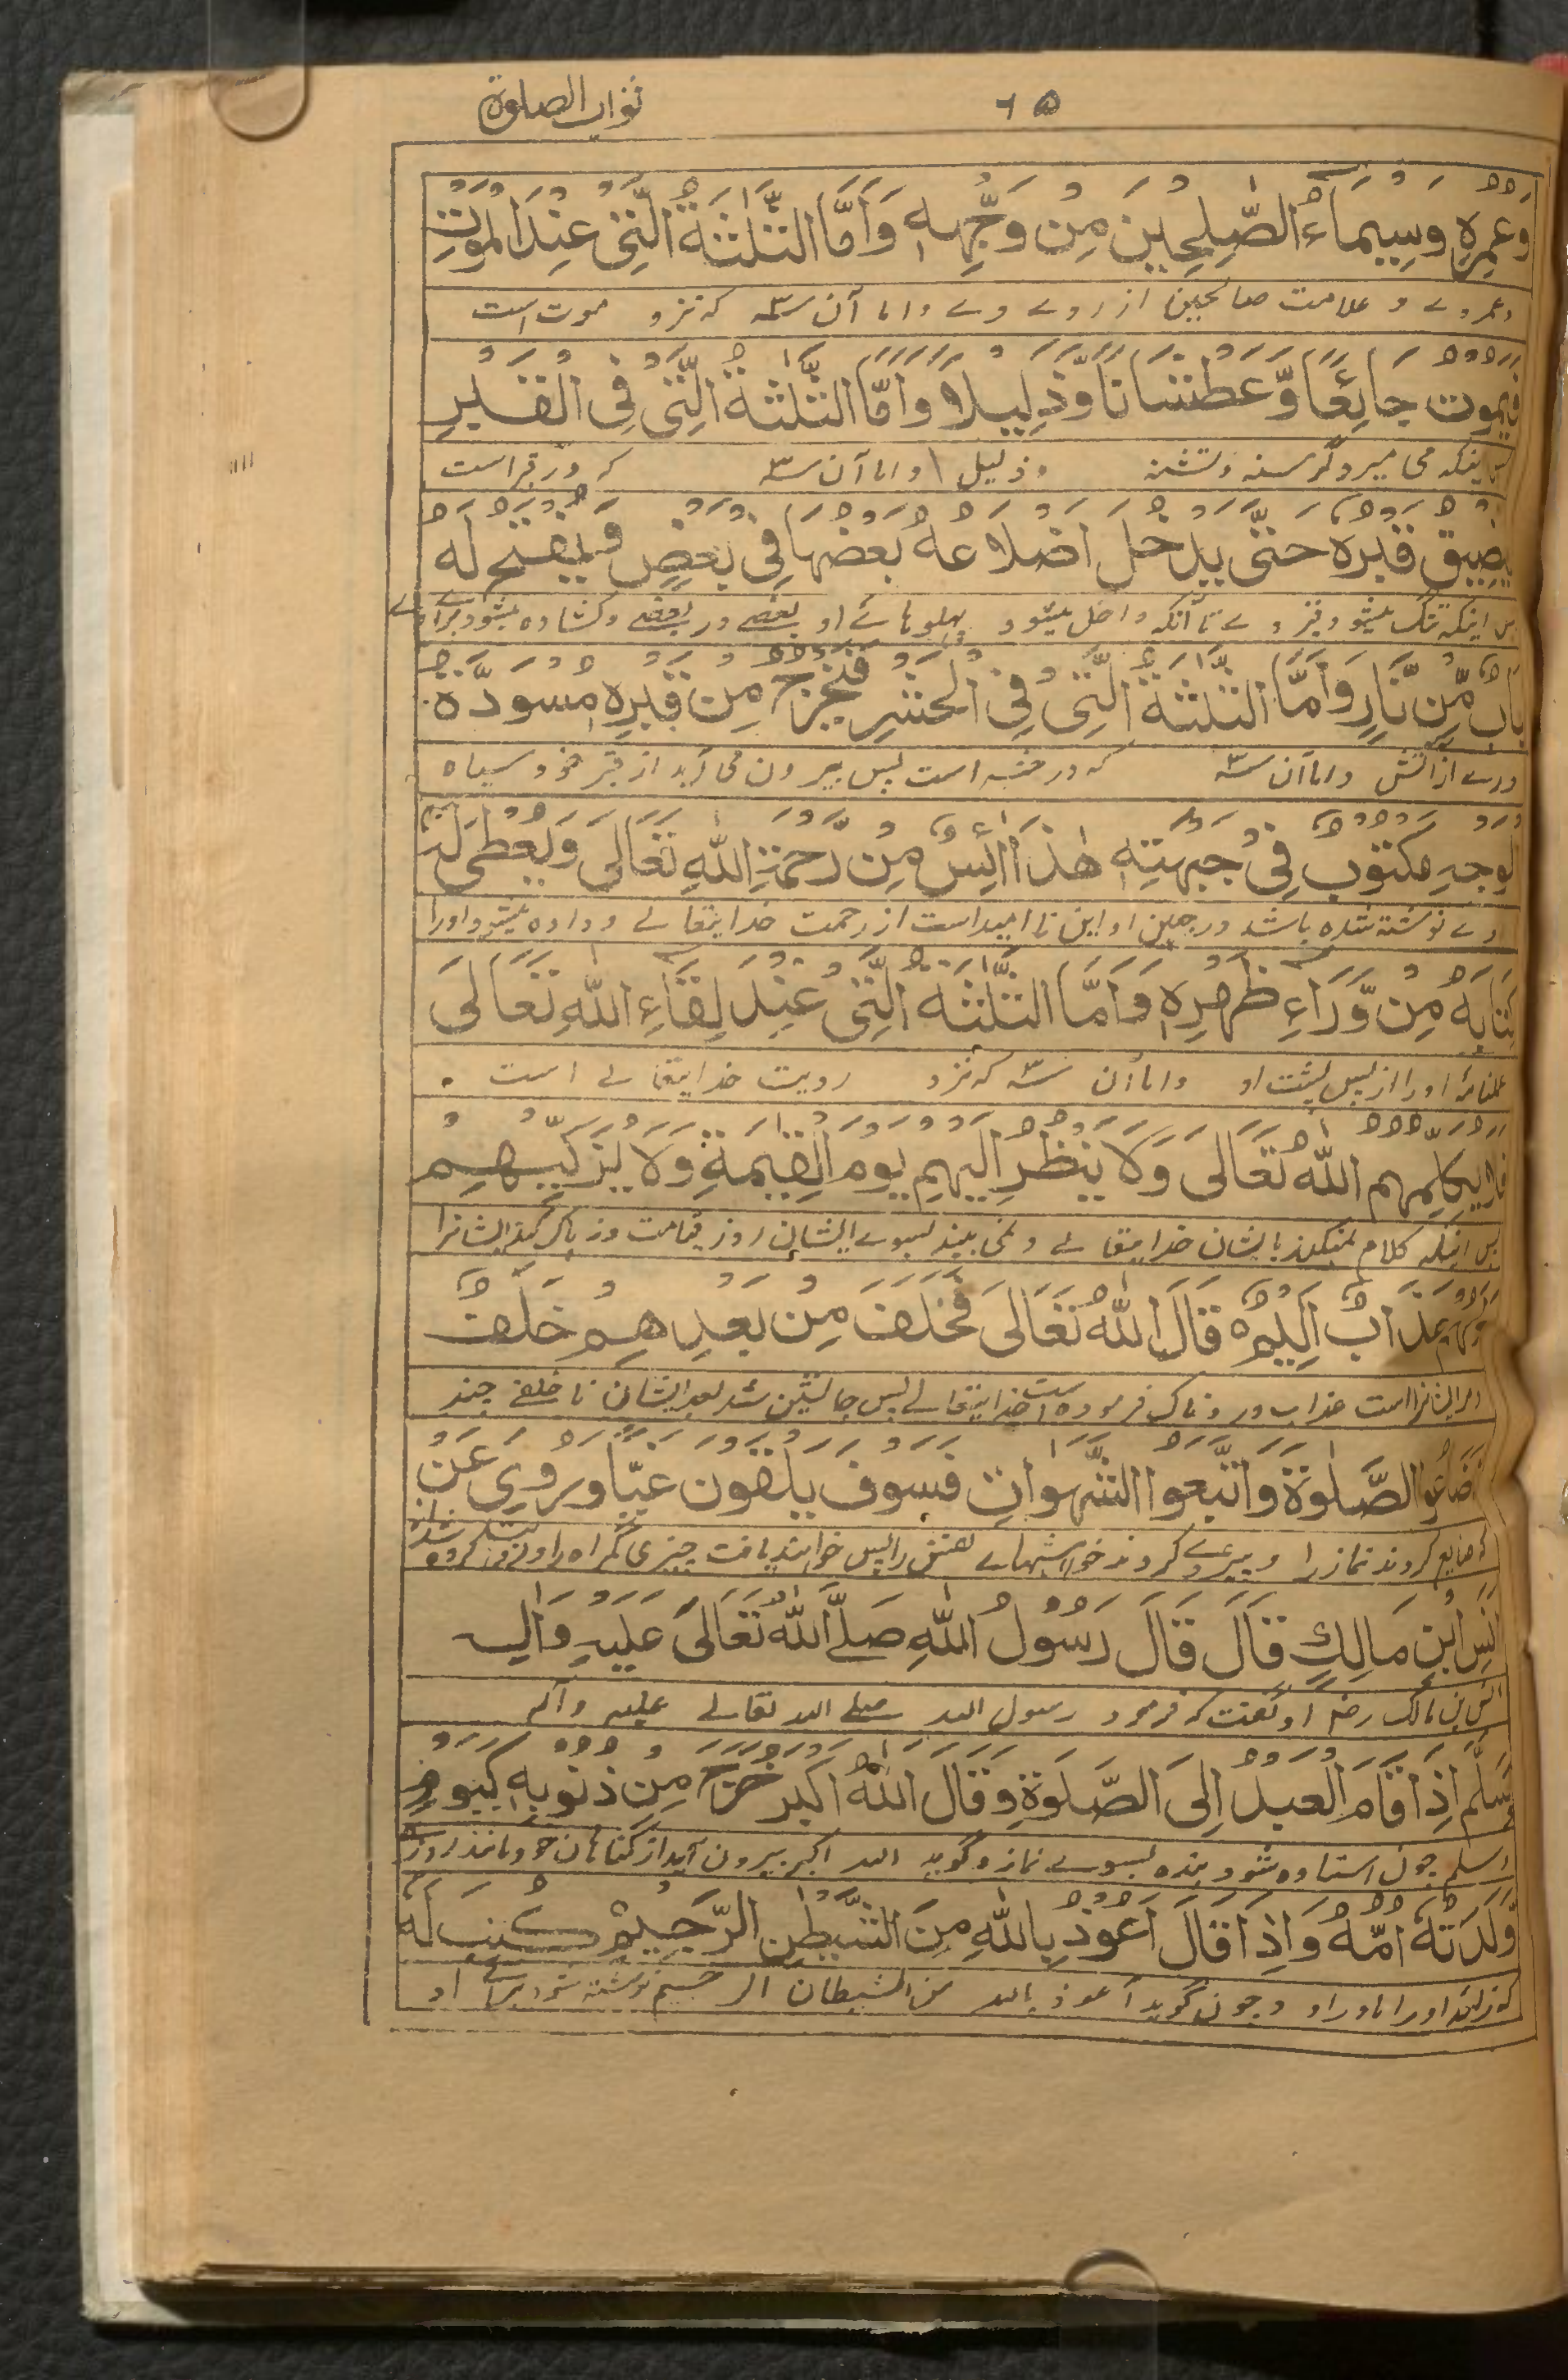 ۶۵
ثواب الصلوة
وَعُمُرِهٖ وَسِيْمَاءُ الصّٰلِحِيْنَ مِنْ وَّجْهِهٖ وَاَمَّا الثَّلٰثَةُ الَّتِىْ عِنْدَ الْمَوْتِ
وعمر وے و علامت صالحین از روے وے واما آن سه که نزد موت است
فَيَمُوْتُ جَائِعًا وَّعَطْشَانًا وَّذَلِيْلًا وَاَمَّا الثَّلٰثَةُ الَّتِىْ فِى الْقَبْرِ
پس اینکه می میرد گرسنه و تشنه و ذلیل واما آن سه که در قبر است
يَضِيْقُ قَبْرُهٗ حَتّٰى يَدْخُلَ اَضْلَاعُهٗ بَعْضُهَا فِىْ بَعْضٍ وَّيُفْتَحُ لَهٗ
پس اینکه تنگ میشود قبر وے تا آنکه داخل میشود پهلوهائے او بعضے در بعضے و کشاده میشود براے وے
بَابٌ مِّنْ نَّارٍ وَاَمَّا الثَّلٰثَةُ الَّتِىْ فِى الْحَشْرِ فَيَخْرُجُ مِنْ قَبْرِهٖ مُسْوَدَّةَ
درے از آتش واما آن سه که در حشر است پس بیرون می آید از قبر خود سیاه
الْوَجْهِ مَكْتُوْبٌ فِىْ جَبْهَتِهٖ هٰذَا اٰئِسٌ مِنْ رَّحْمَةِ اللّٰهِ تَعَالٰى وَيُعْطٰى لَهٗ
وے نوشته شده باشد در جبین او این نا امید است از رحمت خدایتعالے و داده میشود اورا
كِتَابُهٗ مِنْ وَّرَاءِ ظَهْرِهٖ وَاَمَّا الثَّلٰثَةُ الَّتِىْ عِنْدَ لِقَاءِ اللّٰهِ تَعَالٰى
عملنامه اورا از پس پشت او واما آن سه که نزد رویت خدایتعالے است
فَلَا يُكَلِّمُهُمُ اللّٰهُ تَعَالٰى وَلَا يَنْظُرُ اِلَيْهِمْ يَوْمَ الْقِيٰمَةِ وَلَا يُزَكِّيْهِمْ
پس اینکه کلام نمیکند بایشان خدایتعالے و نمی بیند بسوے ایشان روز قیامت و نه پاک کند ایشانرا
وَلَهُمْ عَذَابٌ اَلِيْمٌ قَالَ اللّٰهُ تَعَالٰى فَخَلَفَ مِنْ بَعْدِهِمْ خَلْفٌ
و مر ایشانرا است عذاب دردناک فرموده است خدایتعالے پس جانشین شد بعد ایشان ناخلفے چند
اَضَاعُوا الصَّلٰوةَ وَاتَّبَعُوا الشَّهَوَاتِ فَسَوْفَ يَلْقَوْنَ غَيًّا وَرُوِىَ عَنْ
که ضایع کردند نماز را و پیروے کردند خواهشهاے نفس را پس خواهند یافت چیزی گمراه را و روایت کرده شد از
اَنَسِ ابْنِ مَالِكٍ قَالَ قَالَ رَسُوْلُ اللّٰهِ صَلَّى اللّٰهُ تَعَالٰى عَلَيْهِ وَاٰلِهٖ
انس بن مالک رض او گفت که فرمود رسول الله صلے الله تعالے علیه وآله
وَسَلَّمَ اِذَا قَامَ الْعَبْدُ اِلَى الصَّلٰوةِ وَقَالَ اللّٰهُ اَكْبَرُ خَرَجَ مِنْ ذُنُوْبِهٖ كَيَوْمِ
وسلم چون استاده شود بنده بسوے نماز و گوید الله اکبر بیرون آید از گناهان خود مانند روزے
وَّلَدَتْهُ اُمُّهٗ وَاِذَا قَالَ اَعُوْذُ بِاللّٰهِ مِنَ الشَّيْطٰنِ الرَّجِيْمِ كُتِبَ لَهٗ
که زائید اورا مادر او و چون گوید اعوذ بالله من الشیطان الرجیم نوشته شود براے او